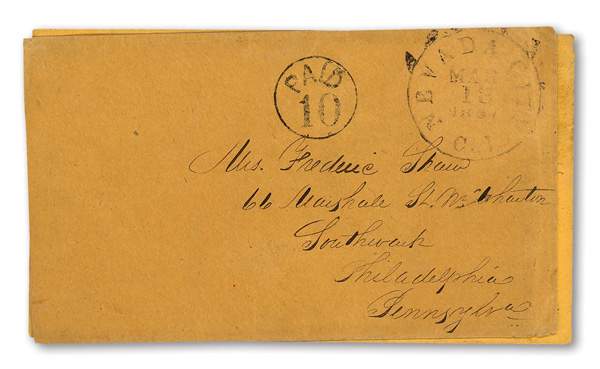 PAID
10
NEVADA CITY
MAR
18
CAL
Mrs. Frederic Shaw
66 Marshall St. Nr. Wharton
Southwark
Philadelphia
Pennsylva